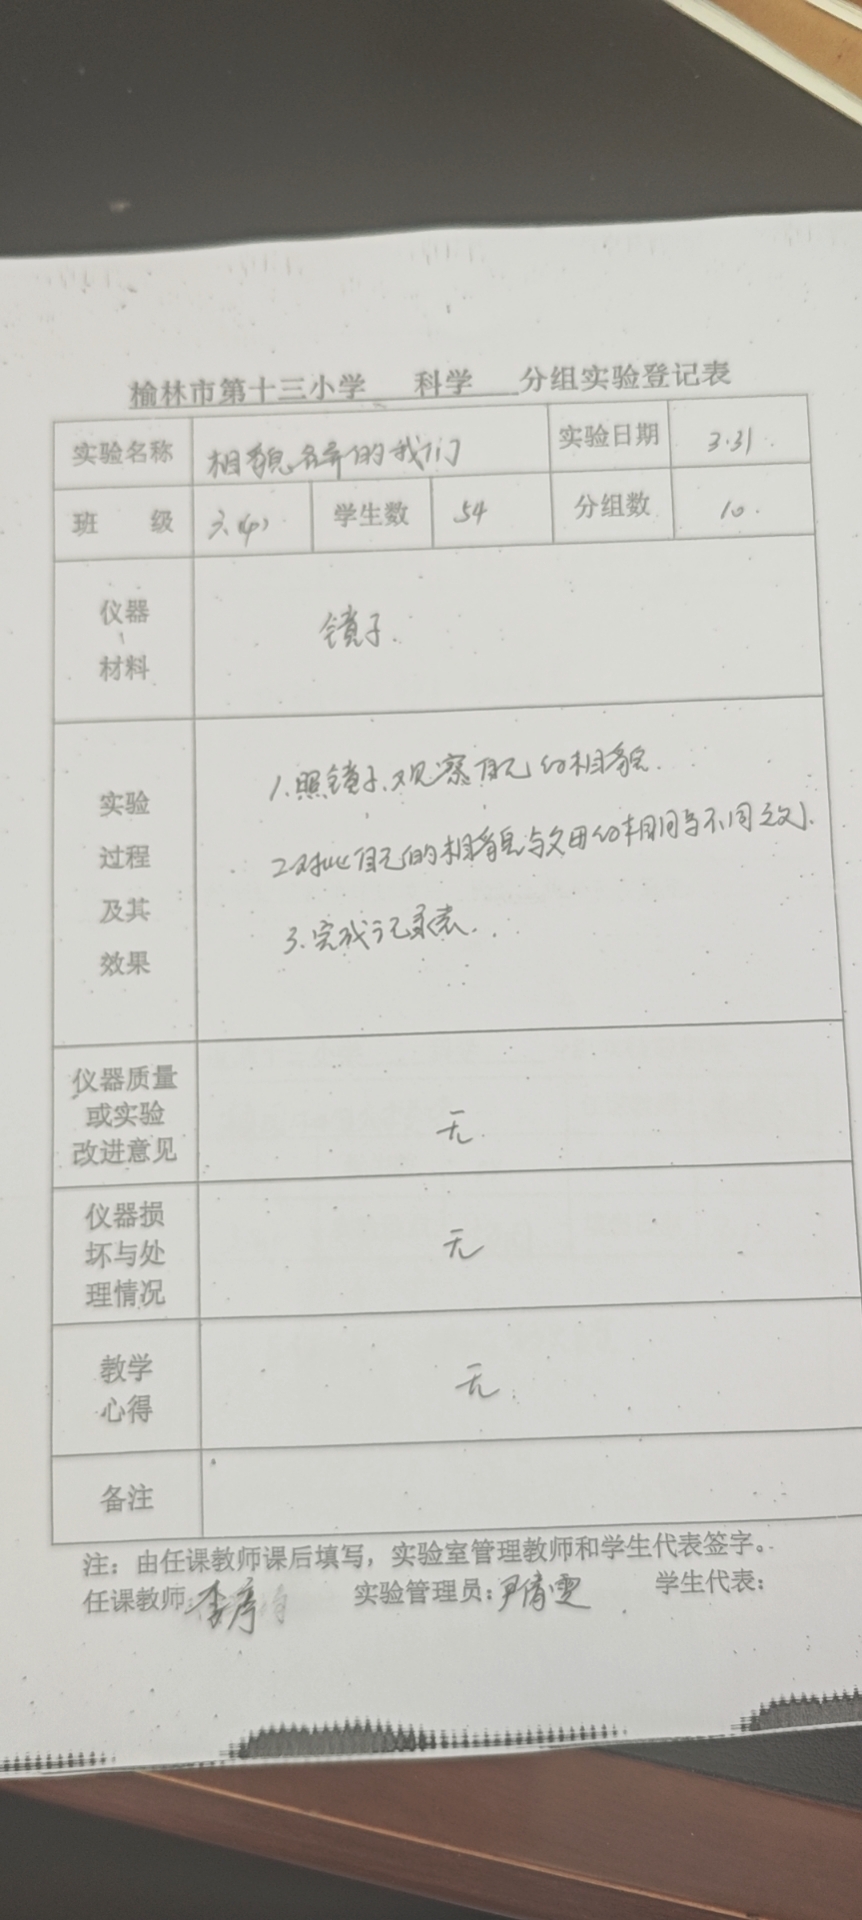 榆林市第十三小学 科学 分组实验登记表
实验名称 相貌各异的我们 实验日期 3.31.
班 级 六(4) 学生数 54 分组数 10.
仪器
、
材料
镜子.
实验
过程
及其
效果
1.照镜子、观察自己的相貌.
2.对比自己的相貌与父母的相同与不同之处.
3.完成记录表.
仪器质量
或实验
改进意见
无.
仪器损
坏与处
理情况
无
教学
心得
无.
备注
注：由任课教师课后填写，实验室管理教师和学生代表签字。
任课教师: 李 实验管理员: 尹倩雯 学生代表: